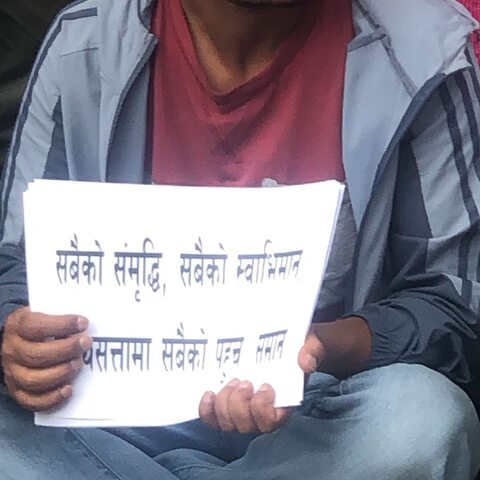 सबैको संमृद्धि, सबैको स्वाभिमान
सबैको पहुच समान